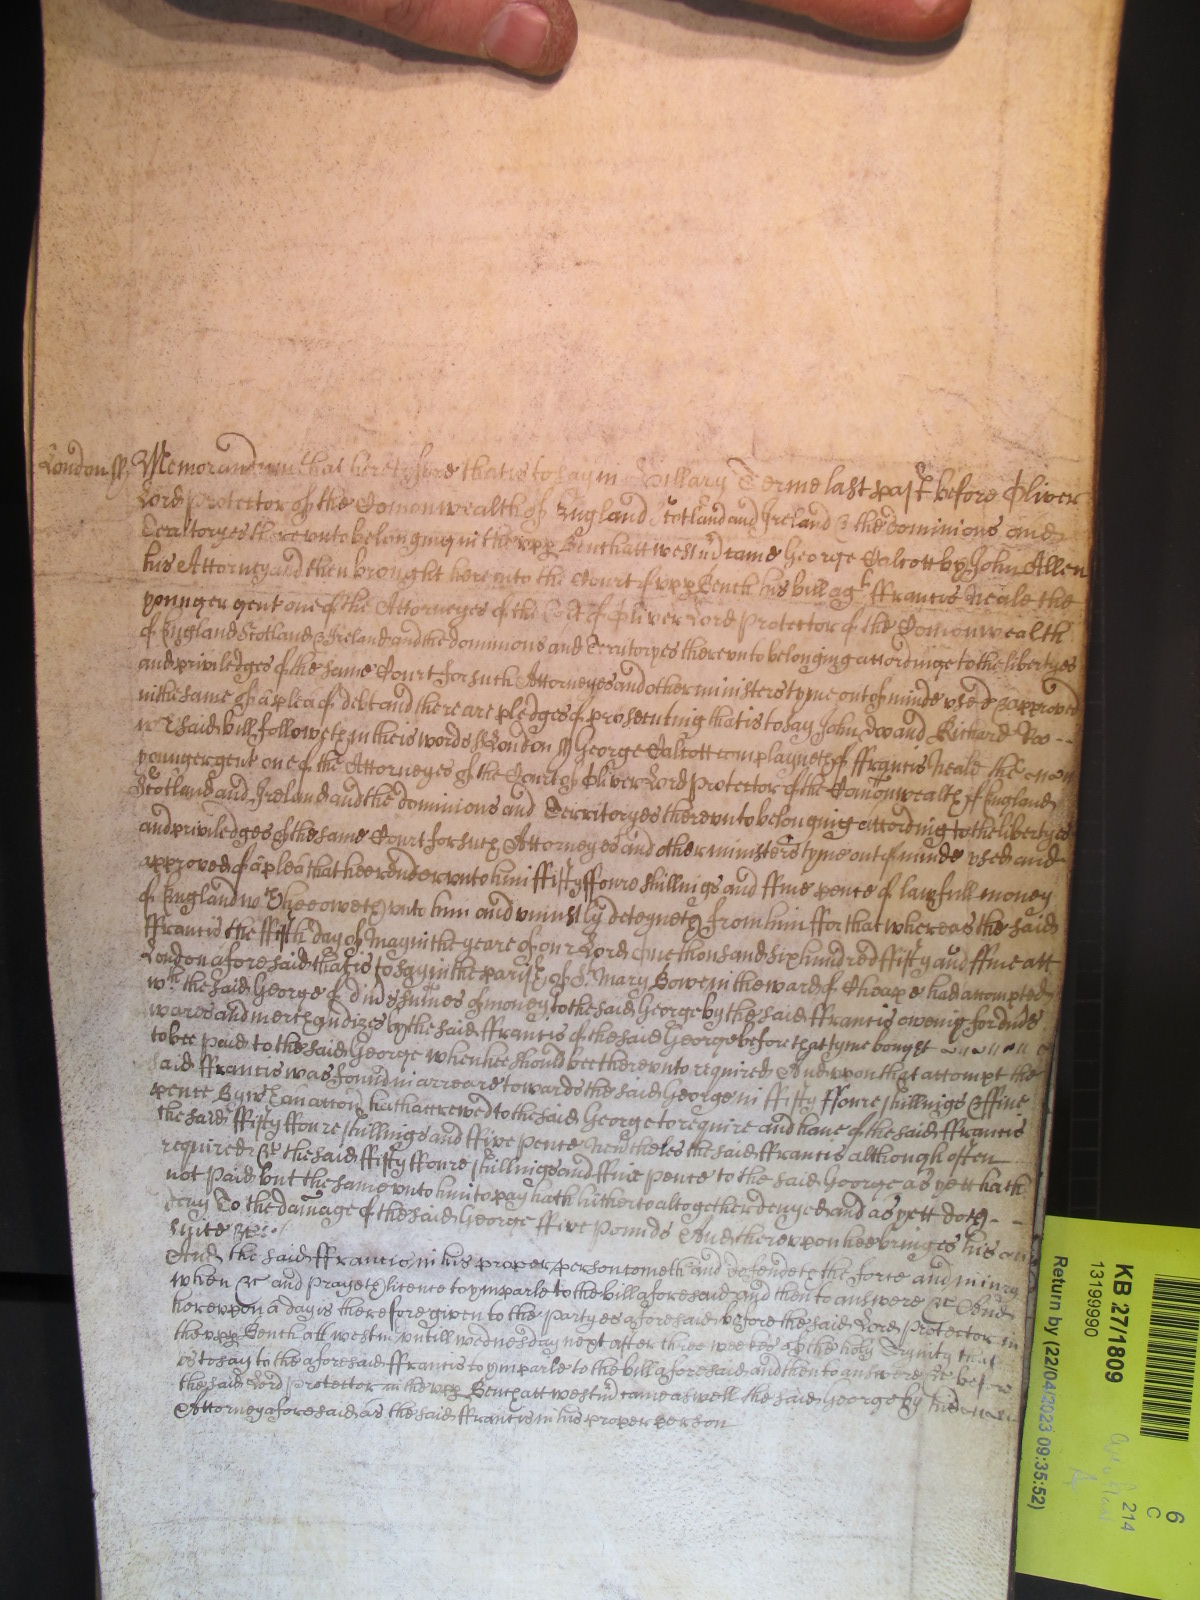 London ss Memorandum that heretofore that is to say in Hillary Terme last past before Oliver
Lord Protector of the Comonwealth of England Scotland and Ireland & the dominions and
Terrtoryes therevnto belonging in the vpp Bench att westm came George Calcott by John Allen
his Attorney and then brought here into the Court of vpp Bench his bill agt ffrancis Neale the
younger gent one of the Attorneyes of the Cort of Oliver Lord Protector of the Comonwealth
of England Scotland & Ireland and the dominions and Territoryes therevnto belonging accordinge to the libertyes
and priviledges of the same Court for such Attorneyes and other ministers tyme out of minde vsed & approved
in the same of a plea of debt and there are pledges of prosecuting that is to say John Doo and Richard Roo
wch said bill followeth in theis words ss London ss George Calcott complayneth of ffrancis Neale the
younger gent one of the Attorneyes of the Court of Oliver Lord Protector of the Comonwealth of England
Scotland and Ireland and the dominions and Territoryes therevnto belonging according to the libertyes
and priviledges of the same Court for such Attorneyes and other ministers tyme out of minde vsed and
approved of a plea that hee render vnto him ffifty ffoure shillings and ffiue pence of lawfull money
of England wch hee oweth vnto him and vniustly deteyneth from him ffor that whereas the said
ffrancis the ffifth day of May in the yeare of our Lord one thousand six hundred ffifty and ffiue att
London aforesaid that is to say in the parish of St Mary Bowe in the ward of Cheape had accompted
wth the said George of divs summes of money to the said George by the said ffrancis oweing for divs
wares and merchandizes by the said ffrancis of the said George before that tyme bought
to bee paid to the said George when hee should bee therevnto required And vpon that accompt the
said ffrancis was found in arreare towards the said George in ffifty ffoure shillings & ffiue
pence By wch an accon hath accrewed to the said George to require and haue of the said ffrancis
the said ffifty ffoure shillings and ffive pence Neutheles the said ffrancis although often
required &c the said ffifty ffoure shillings and ffiue pence to the said George as yett hath
not paid but the same vnto him to pay hath hitherto altogether denyed and as yett doth
deny To the damage of the said George ffive pounds And therevpon hee bringes his
suite &c.
And the said ffrancis in his proper person cometh and defendeth the force and iniury
when &c and prayeth licence to ymparle to the bill aforesaid and then to answere &c And
herevpon a day is therefore given to the partyes aforesaid before the said Lord Protector in
the vpp Bench att westm vntill wednesday next after three weekes of the holy Trinity that
is to say to the aforesaid ffrancis to ymparle to the bill aforesaid and then to answere &c before
the said Lord Protector in the vpp Bench att westm came aswell the said George by his
Attorney aforesaid as the said ffrancis in his proper person
KB 27/1809
13199990
Return by (22/04/2023 09:35:52)
6
C
214